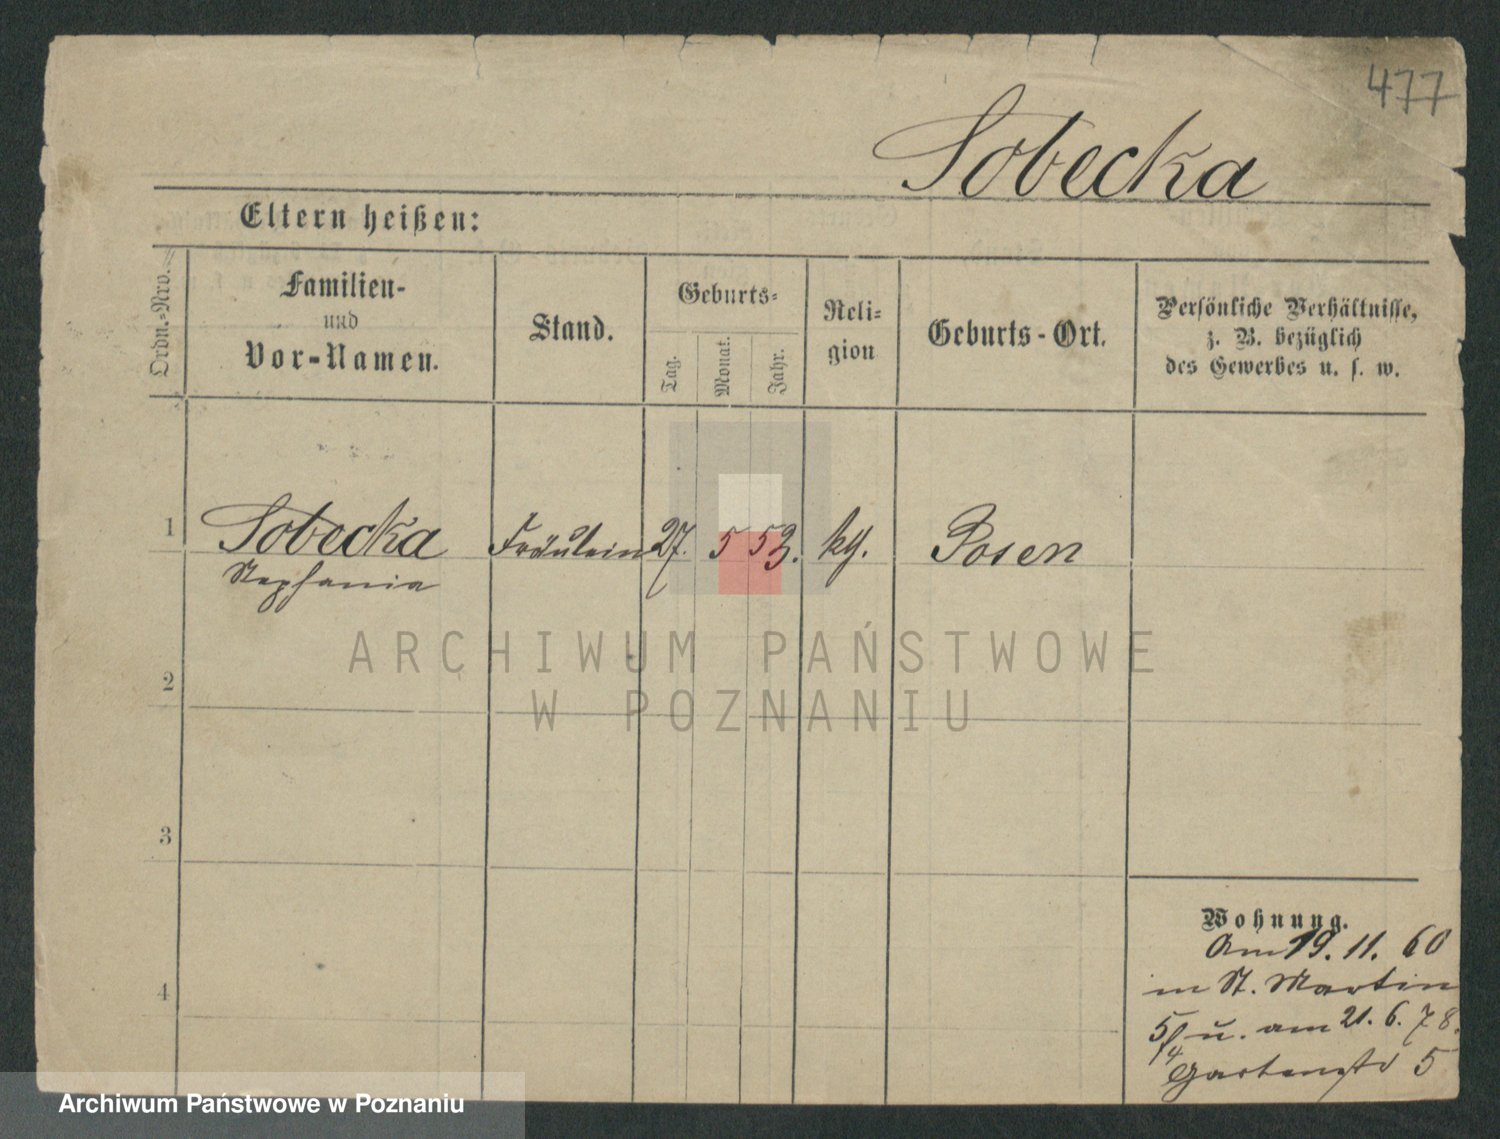 477
Sobecka
Eltern heißen:
Ordn.-Nro.
Familien-
und
Vor-Namen.
Stand.
Geburts-
Tag.
Monat.
Jahr.
Reli-
gion
Geburts-Ort.
Persönliche Verhältnisse,
z. B. bezüglich
des Gewerbes u. s. w.
1
Sobecka Fräulein 27. 5 53. kth. Posen
Stephania
ARCHIWUM PAŃSTWOWE
W POZNANIU
2
3
4
Wohnung.
Am 19. 11. 60
in St. Martin
5/4 u. am 21. 6. 78.
Gartenstr 5
Archiwum Państwowe w Poznaniu